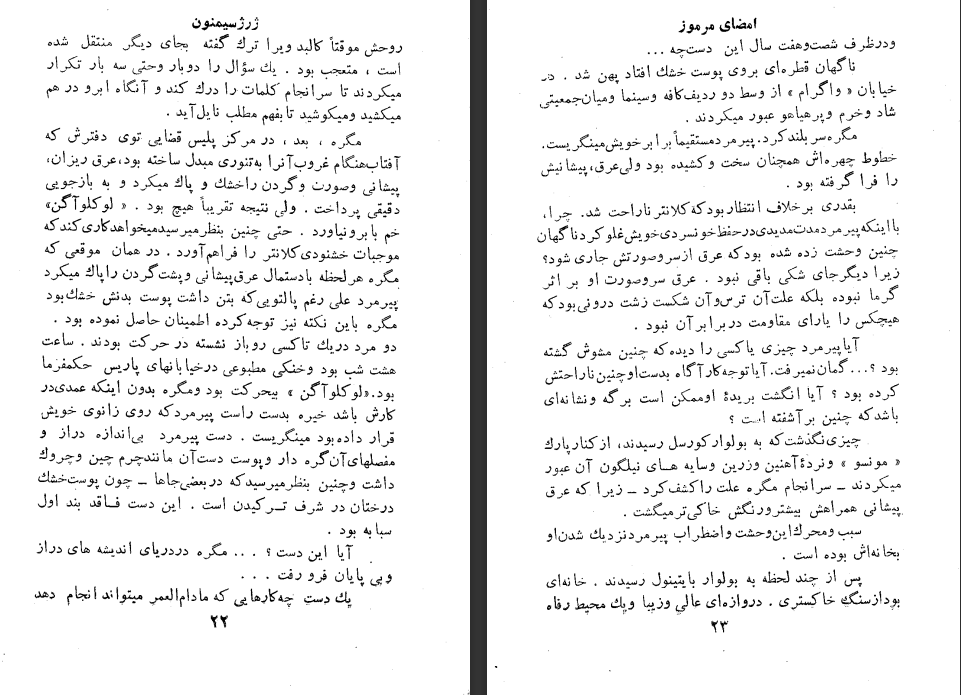 ژرژسیمنون
روحش موقتاً کالبد ویرا ترك گفته بجای دیگر منتقل شده
است ، متعجب بود . یك سؤال را دوبار وحتی سه بار تکرار
میکردند تا سرانجام کلمات را درك کند و آنگاه ابرو در هم
میکشید ومیکوشید تا بفهم مطلب نایل آید .
مگره ، بعد ، در مرکز پلیس قضایی توی دفترش که
آفتاب هنگام غروب آنرا به تنوری مبدل ساخته بود، عرق ریزان،
پیشانی وصورت وگردن راخشك و پاك میکرد و به بازجویی
دقیقی پرداخت . ولی نتیجه تقریباً هیچ بود . « لوکلو آگن»
خم با برو نیاورد . حتی چنین بنظر میرسید میخواهد کاری کند که
موجبات خشنودی کلانتر را فراهم آورد . در همان موقعی که
مگره هر لحظه بادستمال عرق پیشانی وپشت گردن را پاك میکرد
پیرمرد علی رغم پالتویی که بتن داشت پوست بدنش خشك بود
مگره باین نکته نیز توجه کرده اطمینان حاصل نموده بود .
دو مرد در یك تاکسی روباز نشسته در حرکت بودند . ساعت
هشت شب بود وخنکی مطبوعی درخیابانهای پاریس حکمفرما
بود. «لوکلو آگن » بیحرکت بود ومگره بدون اینکه عمدی در
کارش باشد خیره بدست راست پیرمرد که روی زانوی خویش
قرار داده بود مینگریست . دست پیرمرد بی اندازه دراز و
مفصلهای آن گره دار وپوست دست آن مانند چرم چین وچروك
داشت وچنین بنظر میرسید که در بعضی جاها ــ چون پوست خشك
درختان در شرف تــرکیدن است . این دست فــاقد بند اول
سبابه بود .
آیا این دست ؟ ... مگره در دریای اندیشه های دراز
وبی پایان فرو رفت . . .
یك دست چه کارهایی که مادام العمر میتواند انجام دهد
۲۲
امضای مرموز
ودر ظرف شصت وهفت سال این دست چه ...
ناگهان قطره ای بروی پوست خشك افتاد پهن شد . در
خیابان « واگرام » از وسط دو ردیف کافه وسینما ومیان جمعیتی
شاد وخرم وپر هیاهو عبور میکردند .
مگره سر بلند کرد. پیرمرد مستقیماً برابر خویش مینگریست.
خطوط چهره اش همچنان سخت و کشیده بود ولی عرق، پیشانیش
را فرا گرفته بود .
بقدری بر خلاف انتظار بود که کلانتر ناراحت شد. چرا،
با اینکه پیرمرد مدت مدیدی در حفظ خونسردی خویش غلو کرد ناگهان
چنین وحشت زده شده بود که عرق از سروصورتش جاری شود؟
زیرا دیگر جای شکی باقی نبود . عرق سروصورت او بر اثر
گرما نبوده بلکه علت آن ترس و آن شکست زشت درونی بود که
هیچکس را یارای مقاومت در برابر آن نبود .
آیا پیرمرد چیزی یا کسی را دیده که چنین مشوش گشته
بود ؟... گمان نمیرفت. آیا توجه کارآگاه بدست او چنین ناراحتش
کرده بود ؟ آیا انگشت بریدهٔ او ممکن است برگه و نشانه ای
باشد که چنین بر آشفته است ؟
چیزی نگذشت که به بولوار کورسل رسیدند، از کنار پارك
« مونسو » ونردهٔ آهنین وزرین وسایه هــای نیلگون آن عبور
میکردند ــ سرانجام مگره علت را کشف کرد ــ زیرا که عرق
پیشانی همراهش بیشتر ورنگش خاکی تر میگشت .
سبب ومحرك این وحشت واضطراب پیرمرد نزدیك شدن او
بخانه اش بوده است .
پس از چند لحظه به بولوار باتینیول رسیدند . خانه ای
بود از سنگ خاکستری . دروازه ای عالی وزیبا ویك محیط رفاه
۲۳